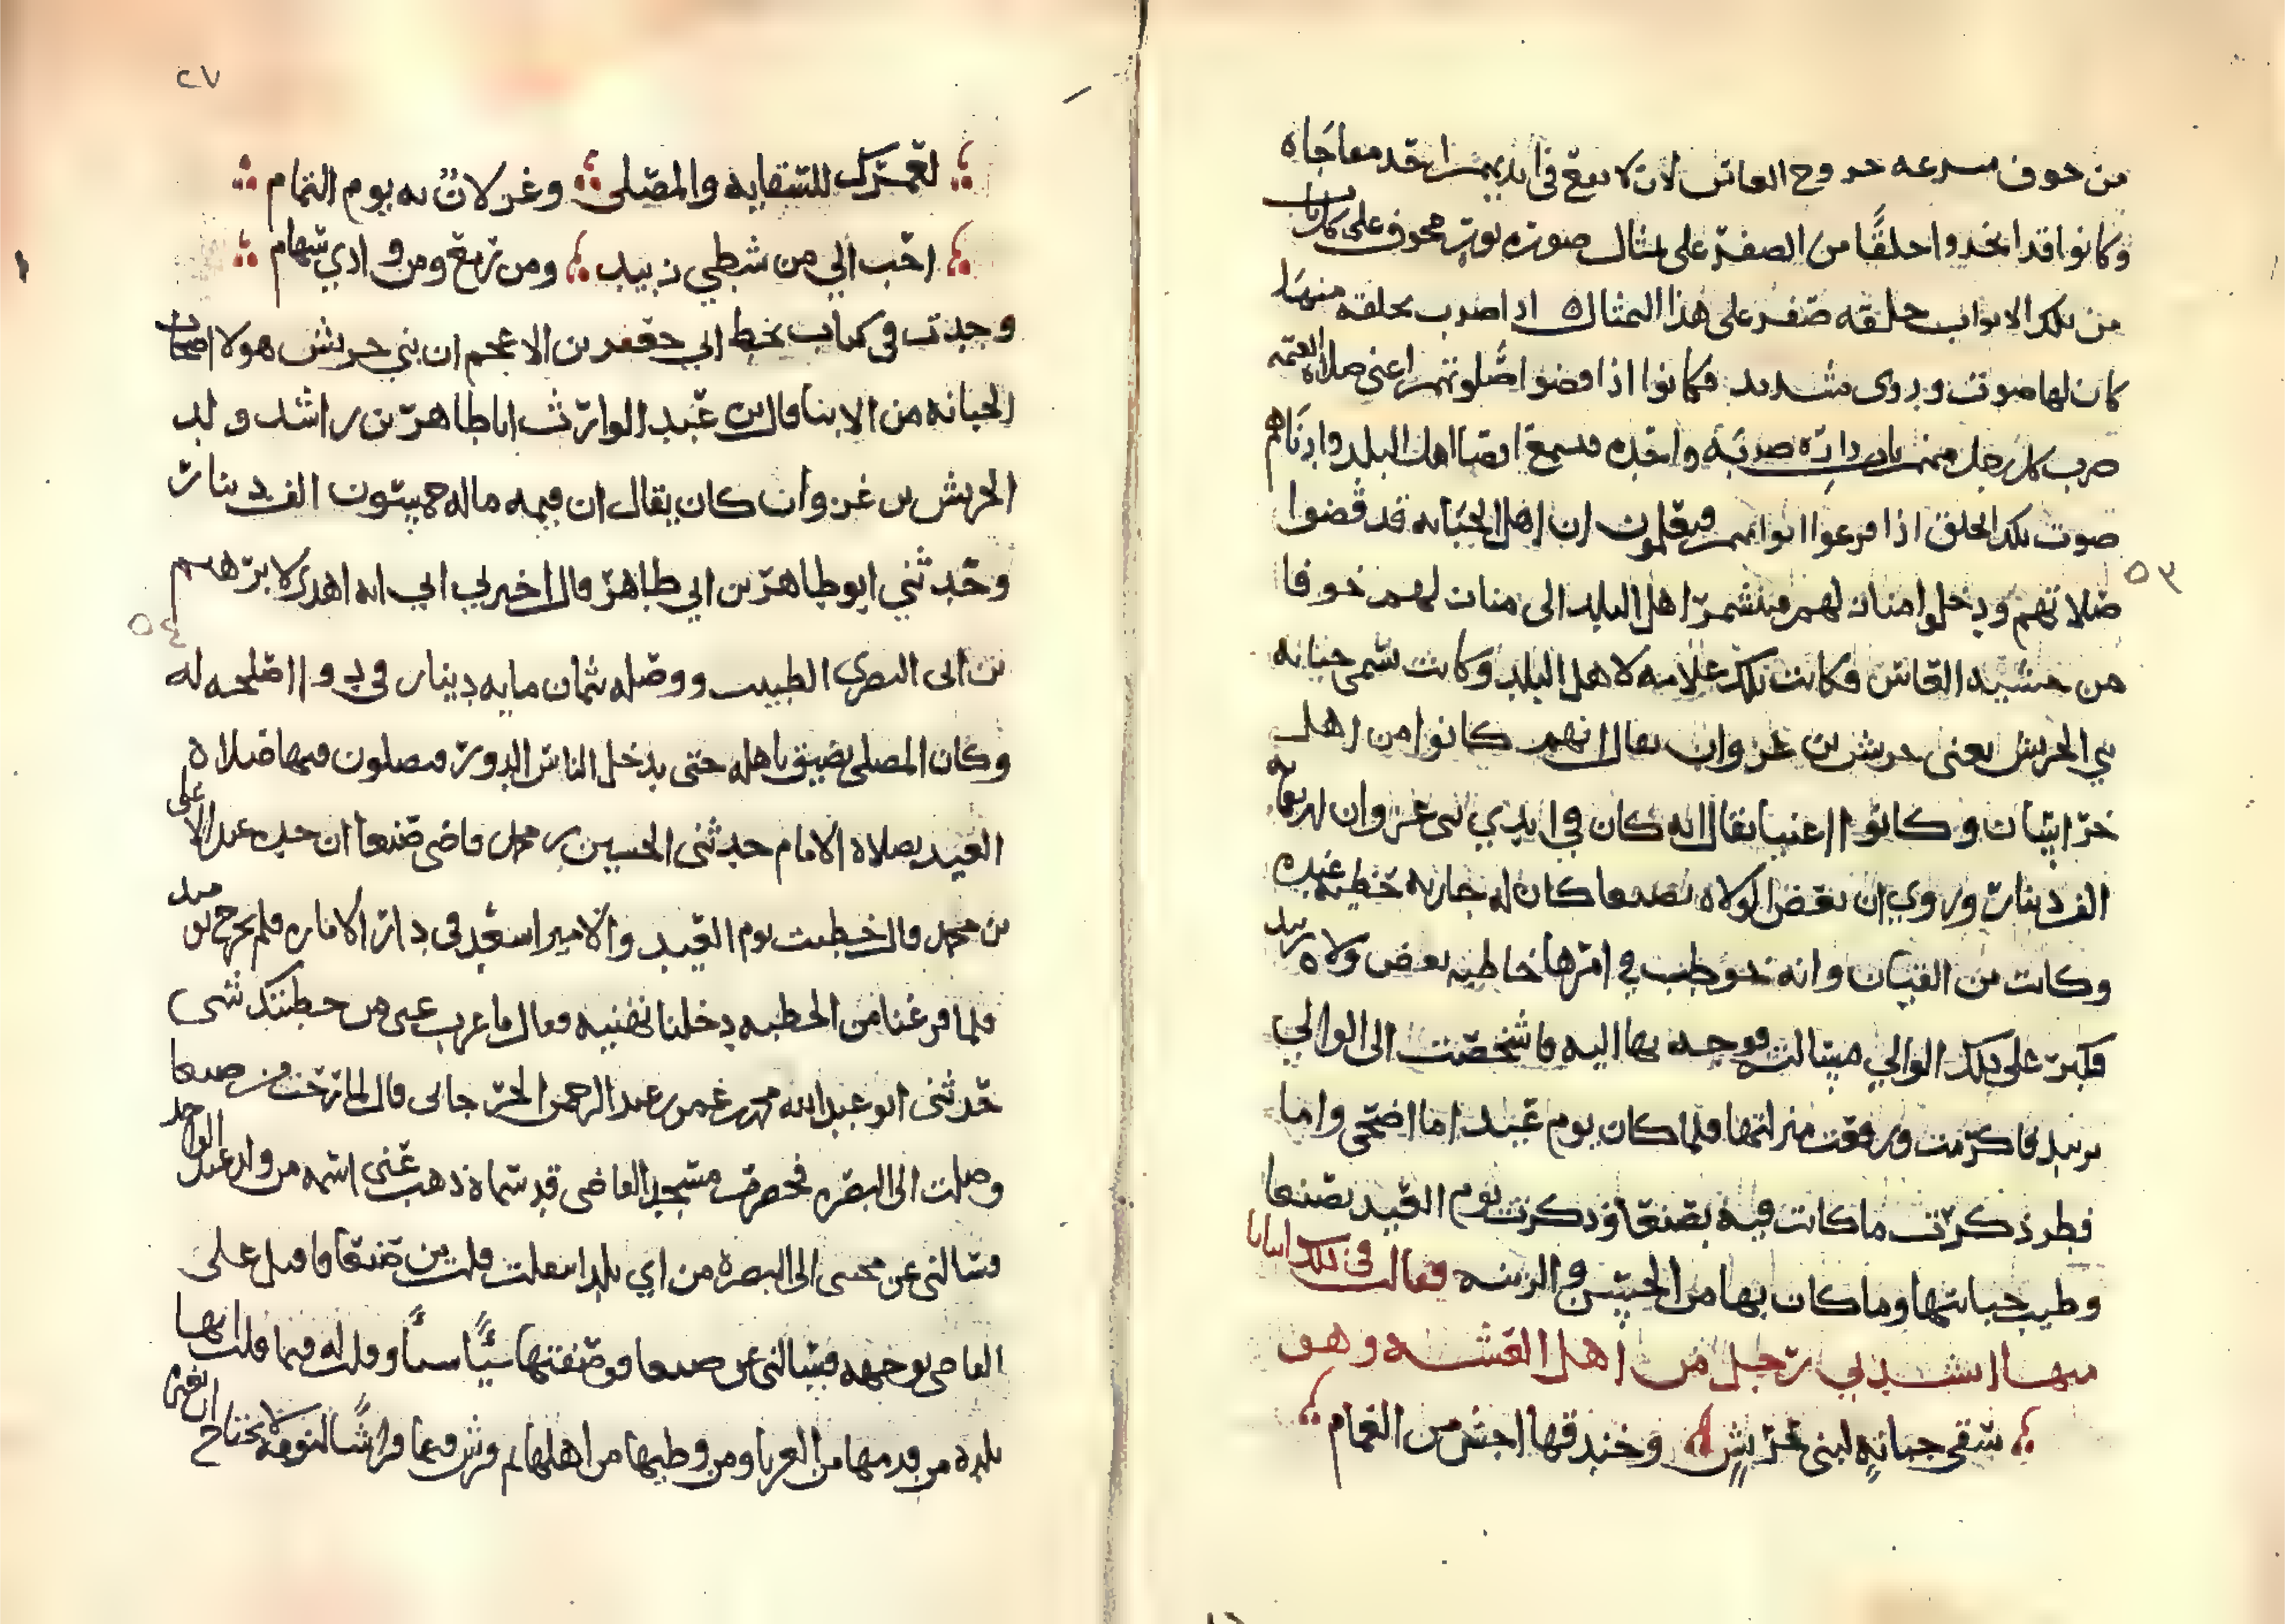 من خوف سرعه خروج العاس لان لا يبقى في ايديهم احد مفاجاه
وكانوا قد اتخذوا حلقًا من الصفر على مثال صوره ثور مجوف على كل باب
من تلك الابواب حلقه صفر على هذا التمثال اذا ضرب بحلقه منها
كان لها صوت ودوى شديد فكانوا اذا قضوا صلوتهم اعنى صلاه العتمه
ضرب كل رجل منهم باب داره ضربه واحده فسمع اقصا اهل البلد وادناهم
صوت تلك الحلق اذا قرعوا ابوابهم فيعلمون ان اهل الجبانه قد قضوا
صلاتهم ودخلوا منازلهم فيتشمر اهل البلد الى منازلهم خوفا
من خشيه العاس فكانت تلك علامه لاهل البلد وكانت تسمى جبانه
بني الحريش يعنى حريش بن غزوان يقال انهم كانوا من اهل
خراسان وكانوا اغنيا يقال انه كان في ايدي بنى غزوان اربعمايه
الف دينار وروي ان بعض الولاه بصنعا كان له جاريه حظيه عنده
وكانت من القيان وانه خوطب في امرها خاطبه بعض ولاه زبيد
فكبر على ذلك الوالي مسالته فوجه بها اليه فاشخصت الى الوالي
بزبيد فاكرمت ورفعت منزلتها فلما كان يوم عيد اما اضحى واما
فطر ذكرت ما كانت فيه بصنعا وذكرت يوم العيد بصنعا
وطيب جبانتها وما كان بها من الحسن والزينه فقالت في ذلك ابياتا
منها انشدني رجل من اهل القشه وهو
سقى جبانةٍ لبنى حريشٍ وخندقها اجش من الغمام
٥٣
٢٧
لعمرك للسقايه والمصلى وغزلان به يوم التمام
احب الي من شطي زبيد ومن رمع ومن وادي سهام
وجدت في كتاب بخط ابي جعفر بن الاعجم ان بني حريش هولا اصحاب
الجبانه من الابنا قال ابن عبد الوارث ابا طاهر بن راشد ولد
الحريش بن غزوان كان يقال ان قيمه ماله خمسون الف دينار
وحدثني ابو طاهر بن ابي طاهر قال اخبرني ابي انه اهدى لابرهيم
بن ابى البصري الطبيب ووصله ثمان مايه دينار في دوا اصلحه له
وكان المصلى يضيق باهله حتى يدخل الناس الدور فيصلون فيها صلاه
العيد بصلاه الامام حدثنى الحسين بن محمد قاضى صنعا ان جده عبد الاعلى
بن محمد قال خطبت يوم العيد والامير اسعد في دار الامارة فلم يخرج
فلما فرغنا من الخطبه دخلنا نهنيه فقال ما عزب عنى من خطبتك شى
حدثنى ابو عبد الله محمد بن عمر بن عبد الرحمن الجرجانى قال لما رحت من صنعا
وصلت الى البصره فحضرت مسجد القاضى قد سماه ذهب عنى اسمه من ولد عبد الواحد
فسالنى عن مجيى الى البصرة من اي بلد اقبلت قلت من صنعا فاقبل على
القاضى بوجهه فسالنى عن صنعا فوصفتها شيًا شيًا وقلت له فيما قلت انها
بلده من قدمها من الغربا ومن وطيها من اهلها ثم فرش فيها فراشًا لنومه لا يحتاج ان يغيره
٥٤